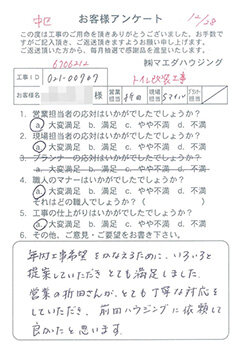 中区 お客様アンケート 12/28
この度は工事のご用命を頂きありがとうございました。お手数で
すがご記入頂き、ご返送頂きますようお願い申し上げます。
ご返送頂いた方から、毎月抽選で感謝品を進呈いたします。
6706212 ㈱マエダハウジング
工事ID 021-00707 トイレ改装工事
お客様名 様 営業担当 折田 現場担当
1. 営業担当者の応対はいかがでしたでしょうか?
a. 大変満足 b. 満足 c. やや不満 d. 不満
2. 現場担当者の応対はいかがでしたでしょうか?
a. 大変満足 b. 満足 c. やや不満 d. 不満
3. プランナーの応対はいかがでしたでしょうか?
a. 大変満足 b. 満足 c. やや不満 d. 不満
4. 職人のマナーはいかがでしたでしょうか?
a. 大変満足 b. 満足 c. やや不満 d. 不満
それはどの職人でしょうか?( )
5. 工事の仕上がりはいかがでしたでしょうか?
a. 大変満足 b. 満足 c. やや不満 d. 不満
6. その他、ご意見・ご要望をお書き下さい。
年内工事希望をかなえるために、いろいろと
提案していただき とても満足しました。
営業の折田さんが、とても丁寧な対応を
していただき、前田ハウジングに依頼して
良かったと思います。